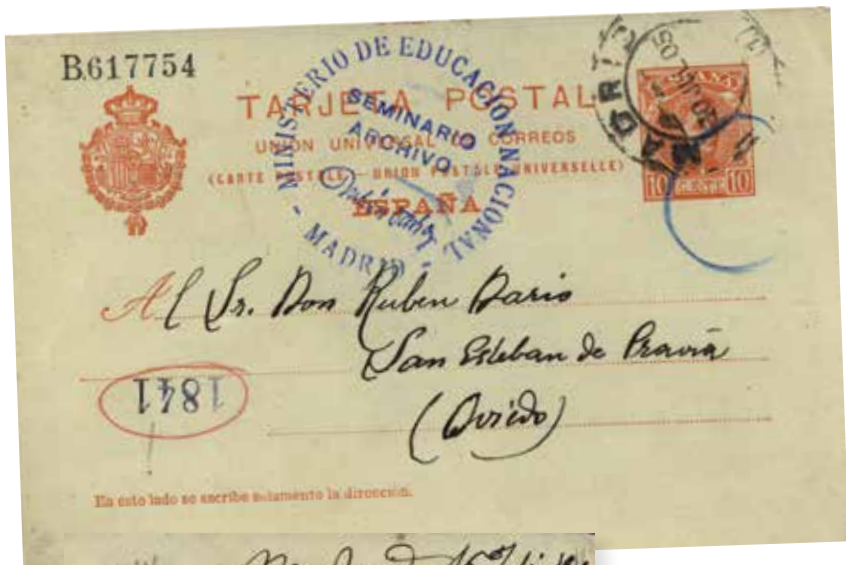 B.617754
TARJETA POSTAL
UNIÓN UNIVERSAL DE CORREOS
(CARTE POSTALE — UNION POSTALE UNIVERSELLE)
ESPAÑA
MINISTERIO DE EDUCACIÓN NACIONAL
- MADRID -
SEMINARIO
ARCHIVO
Rubén Darío
MADRID
30 JUL 05
ESPAÑA
10 CÉNTS 10
Al Sr. Don Ruben Dario
San Esteban de Pravia
(Oviedo)
1841
En este lado se escribe solamente la dirección.